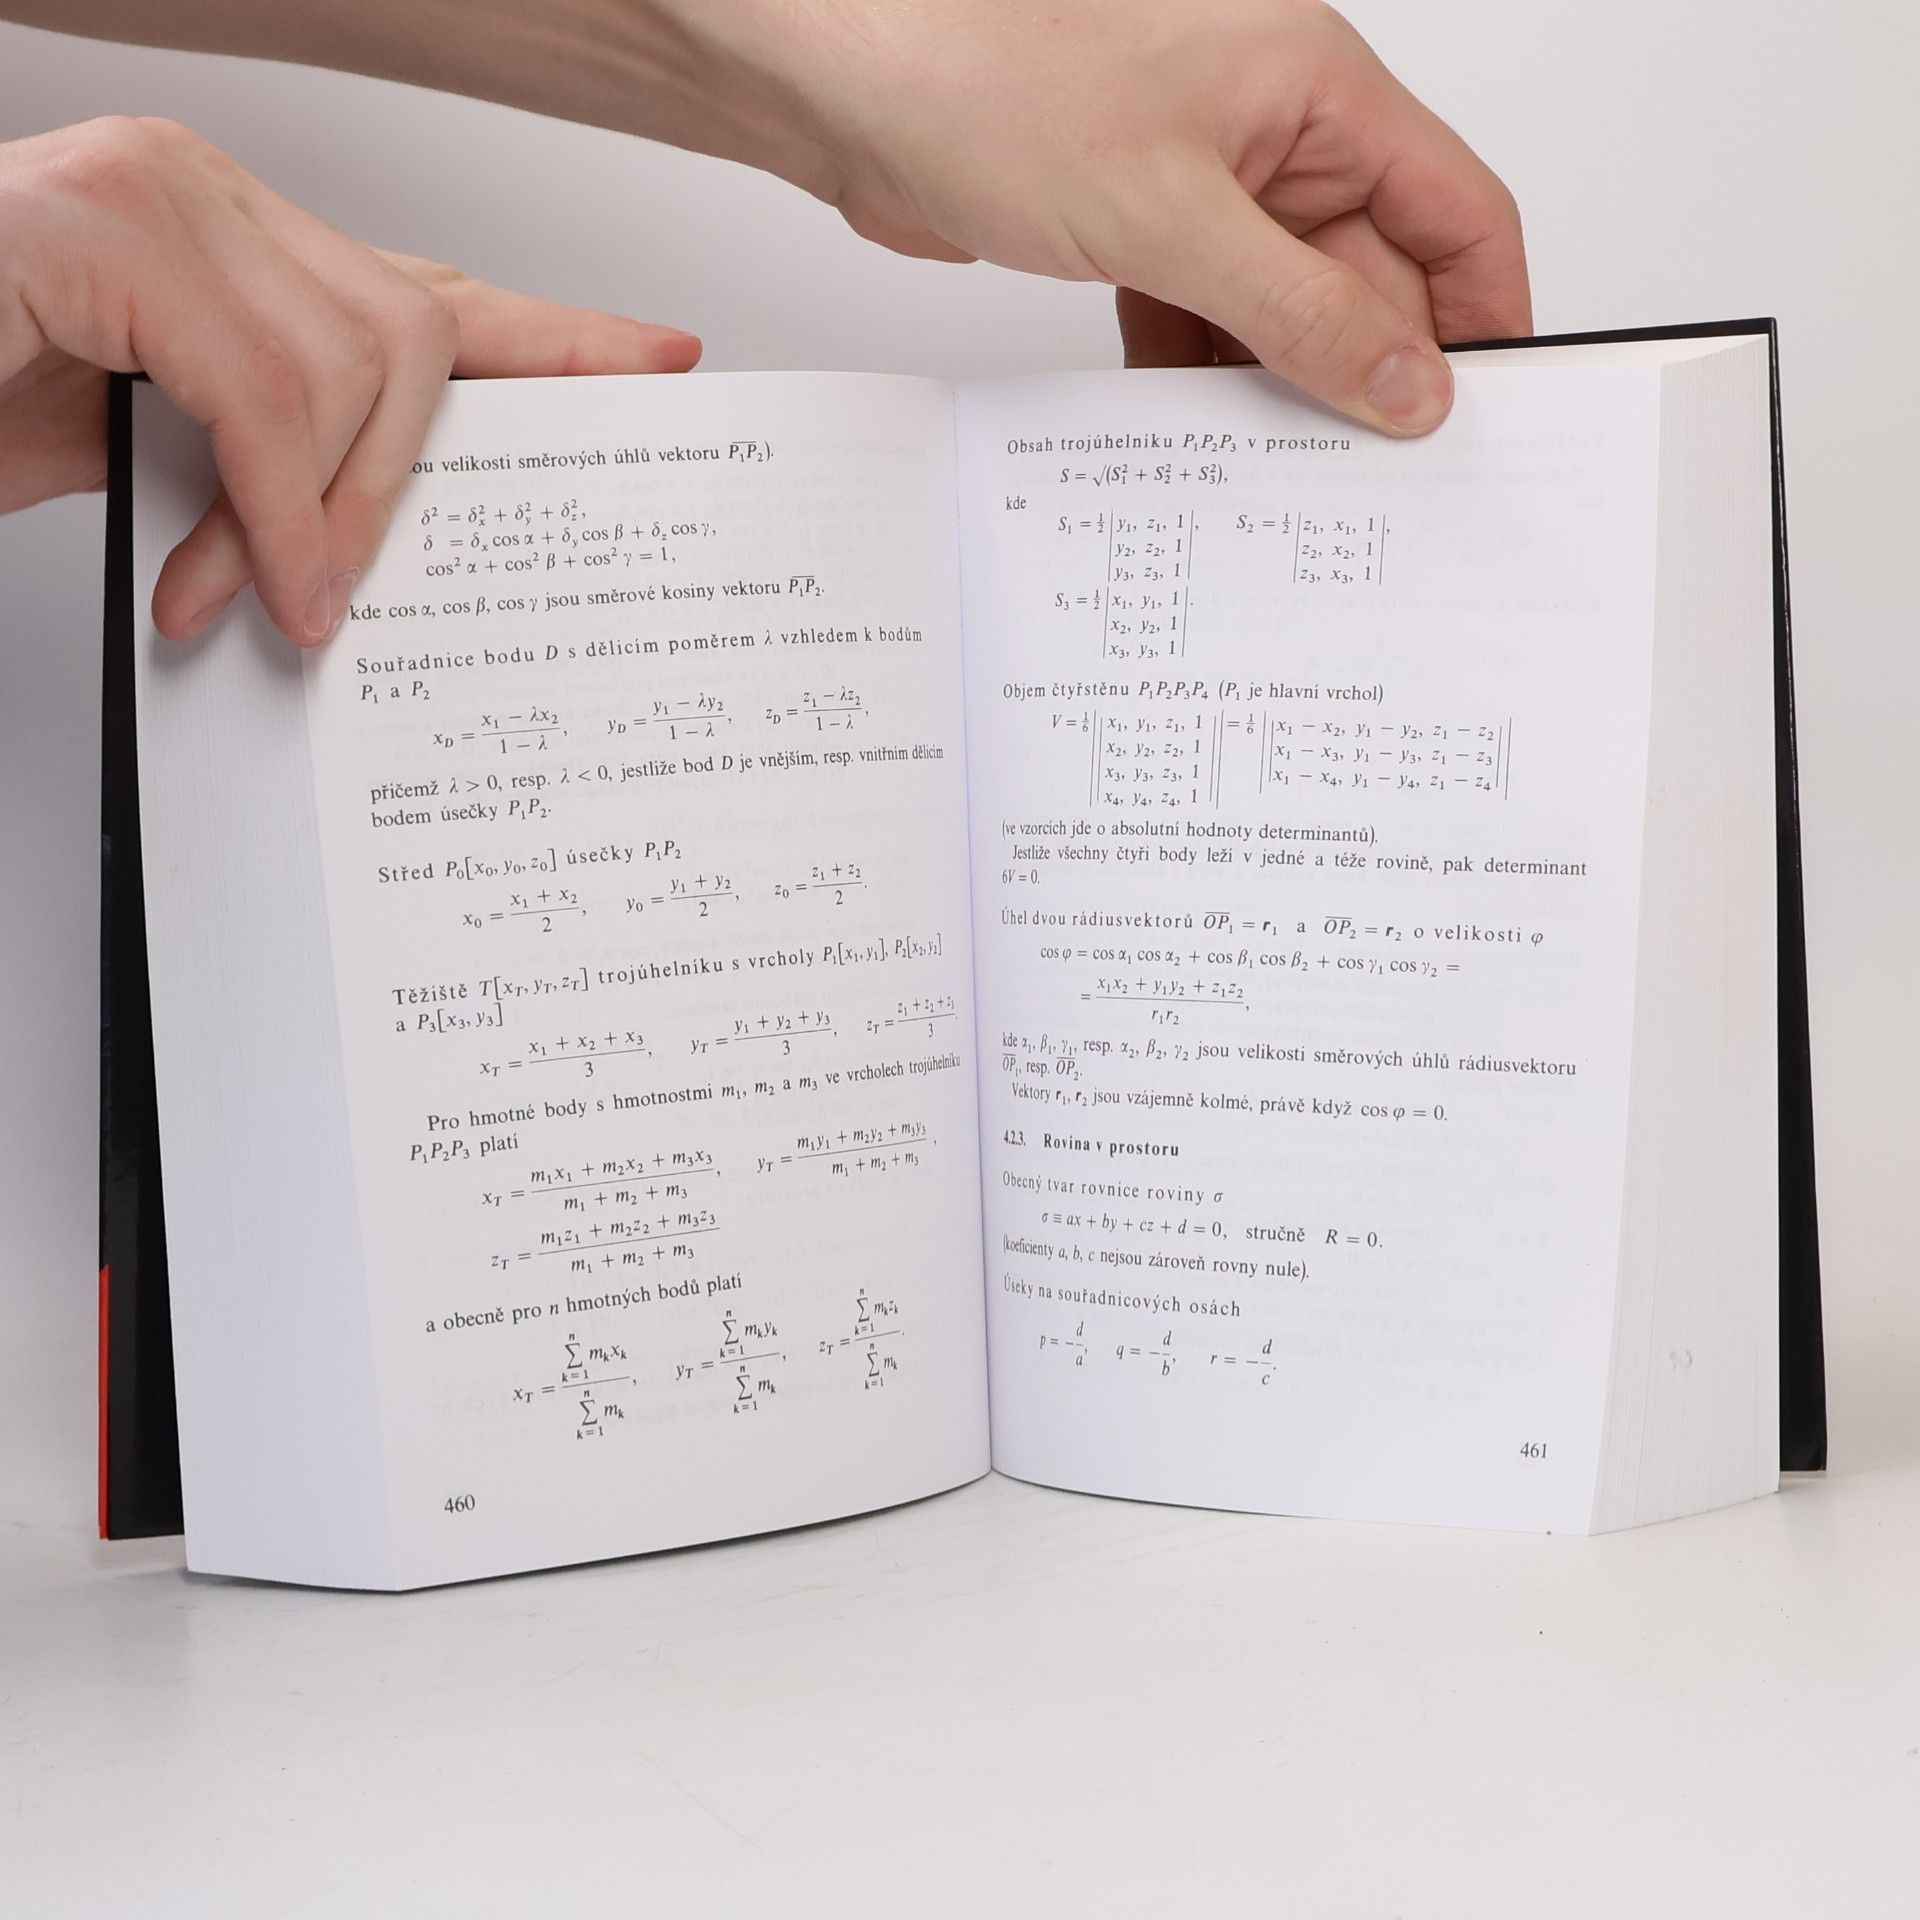 velikosti směrových úhlů vektoru P₁P₂).
δ² = δₓ² + δᵧ² + δ_z²,
δ = δₓ cos α + δᵧ cos β + δ_z cos γ,
cos² α + cos² β + cos² γ = 1,
kde cos α, cos β, cos γ jsou směrové kosiny vektoru P₁P₂.
Souřadnice bodu D s dělicím poměrem λ vzhledem k bodům
P₁ a P₂
x_D = (x₁ − λx₂)/(1 − λ), y_D = (y₁ − λy₂)/(1 − λ), z_D = (z₁ − λz₂)/(1 − λ),
přičemž λ > 0, resp. λ < 0, jestliže bod D je vnějším, resp. vnitřním dělicím
bodem úsečky P₁P₂.
Střed P₀[x₀, y₀, z₀] úsečky P₁P₂
x₀ = (x₁ + x₂)/2, y₀ = (y₁ + y₂)/2, z₀ = (z₁ + z₂)/2.
Těžiště T[x_T, y_T, z_T] trojúhelníku s vrcholy P₁[x₁, y₁], P₂[x₂, y₂]
a P₃[x₃, y₃]
x_T = (x₁ + x₂ + x₃)/3, y_T = (y₁ + y₂ + y₃)/3, z_T = (z₁ + z₂ + z₃)/3.
Pro hmotné body s hmotnostmi m₁, m₂ a m₃ ve vrcholech trojúhelníku
P₁P₂P₃ platí
x_T = (m₁x₁ + m₂x₂ + m₃x₃)/(m₁ + m₂ + m₃), y_T = (m₁y₁ + m₂y₂ + m₃y₃)/(m₁ + m₂ + m₃),
z_T = (m₁z₁ + m₂z₂ + m₃z₃)/(m₁ + m₂ + m₃)
a obecně pro n hmotných bodů platí
x_T = (∑_{k=1}^{n} m_k x_k)/(∑_{k=1}^{n} m_k), y_T = (∑_{k=1}^{n} m_k y_k)/(∑_{k=1}^{n} m_k), z_T = (∑_{k=1}^{n} m_k z_k)/(∑_{k=1}^{n} m_k).
460
Obsah trojúhelníku P₁P₂P₃ v prostoru
S = √(S₁² + S₂² + S₃²),
kde
S₁ = ½ |y₁, z₁, 1|, S₂ = ½ |z₁, x₁, 1|,
|y₂, z₂, 1| |z₂, x₂, 1|
|y₃, z₃, 1| |z₃, x₃, 1|
S₃ = ½ |x₁, y₁, 1|.
|x₂, y₂, 1|
|x₃, y₃, 1|
Objem čtyřstěnu P₁P₂P₃P₄ (P₁ je hlavní vrchol)
V = 1/6 ||x₁, y₁, z₁, 1|| = 1/6 ||x₁ − x₂, y₁ − y₂, z₁ − z₂||
||x₂, y₂, z₂, 1|| ||x₁ − x₃, y₁ − y₃, z₁ − z₃||
||x₃, y₃, z₃, 1|| ||x₁ − x₄, y₁ − y₄, z₁ − z₄||
||x₄, y₄, z₄, 1||
(ve vzorcích jde o absolutní hodnoty determinantů).
Jestliže všechny čtyři body leží v jedné a téže rovině, pak determinant
6V = 0.
Úhel dvou rádiusvektorů OP₁ = r₁ a OP₂ = r₂ o velikosti φ
cos φ = cos α₁ cos α₂ + cos β₁ cos β₂ + cos γ₁ cos γ₂ =
= (x₁x₂ + y₁y₂ + z₁z₂)/(r₁r₂),
kde α₁, β₁, γ₁, resp. α₂, β₂, γ₂ jsou velikosti směrových úhlů rádiusvektoru
OP₁, resp. OP₂.
Vektory r₁, r₂ jsou vzájemně kolmé, právě když cos φ = 0.
4.2.3. Rovina v prostoru
Obecný tvar rovnice roviny σ
σ ≡ ax + by + cz + d = 0, stručně R = 0.
(koeficienty a, b, c nejsou zároveň rovny nule).
Úseky na souřadnicových osách
p = −d/a, q = −d/b, r = −d/c.
461